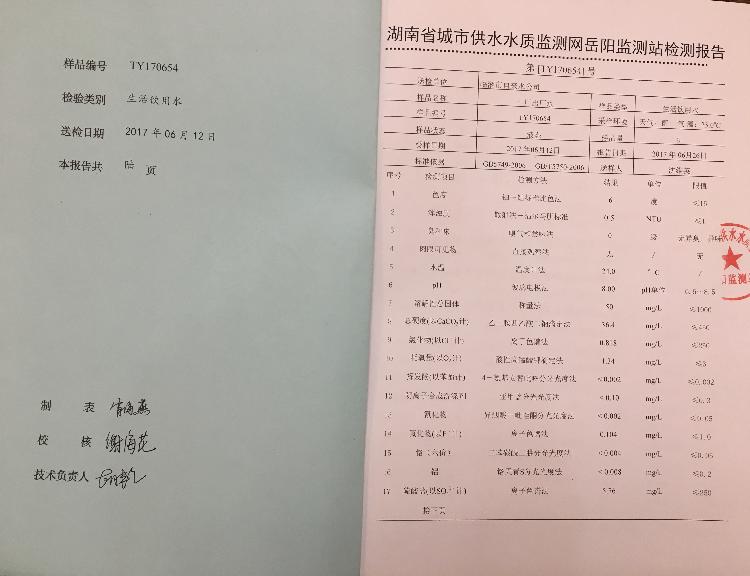 样品编号 TY170654
检验类别 生活饮用水
送检日期 2017 年 06 月 12 日
本报告共 陆 页
制 表
校 核 谢海花
技术负责人
湖南省城市供水水质监测网岳阳监测站检测报告
第 [TY170654] 号
送检单位 临湘市自来水公司
样品名称 出厂水 样品类型 生活饮用水
样品编号 TY170654 采样环境
样品状态 液态 样品量
收样日期 2017 年06月12日 报告日期 2017 年 06月26日
标准依据 GB5749-2006 GB/T5750-2006 送样人
序号 检测项目 检测方法 结果 单位 限值
1 色度 铂—钴标准比色法 6 度 ≤15
2 浑浊度 0.5 NTU ≤1
3 臭和味 嗅气和尝味法 0 级
4 肉眼可见物 直接观察法 无 / 无
5 水温 温度计法 24.0 ° C /
6 pH 玻璃电极法 8.00 pH单位 6.5~8.5
7 溶解性总固体 称量法 50 mg/L ≤1000
8 总硬度(以CaCO₃计) 乙二胺四乙酸二钠滴定法 36.4 mg/L ≤450
9 氯化物(以Cl⁻计) 离子色谱法 0.818 mg/L ≤250
10 耗氧量(以O₂计) 酸性高锰酸钾滴定法 1.34 mg/L ≤3
11 挥发酚(以苯酚计) 4—氨基安替比林分光光度法 <0.002 mg/L ≤0.002
12 阴离子合成洗涤剂 亚甲蓝分光光度法 <0.10 mg/L ≤0.3
13 氰化物 异烟酸—吡唑酮分光光度法 <0.002 mg/L ≤0.05
14 氟化物(以F⁻计) 离子色谱法 0.104 mg/L ≤1.0
15 铬(六价) 二苯碳酰二肼分光光度法 <0.004 mg/L ≤0.05
16 铝 铬天青S分光光度法 <0.008 mg/L ≤0.2
17 硫酸盐(以SO₄²⁻计) 离子色谱法 5.76 mg/L ≤250
接下页